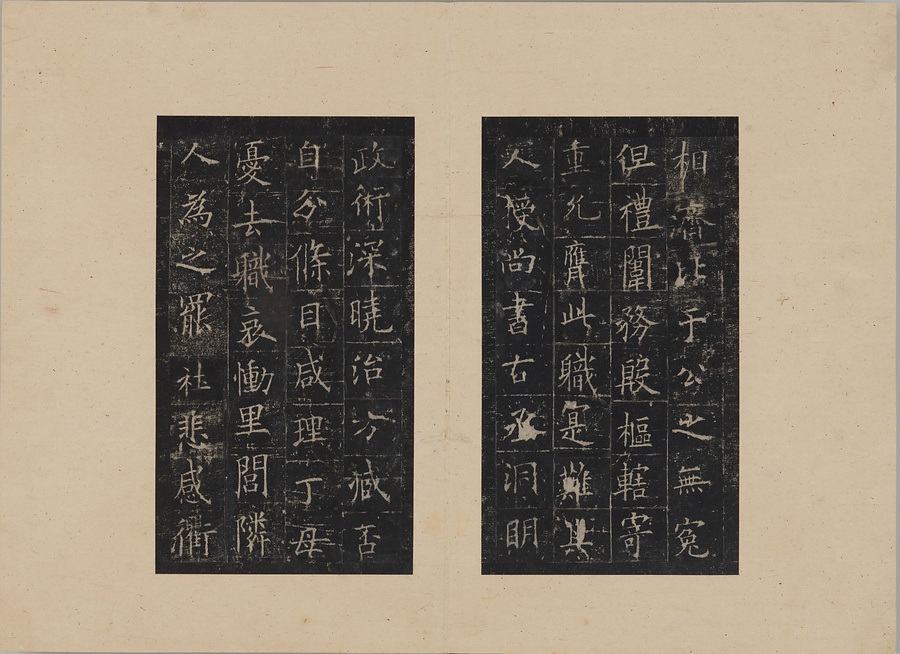 相濟比于公之無寃
但禮闈務殷樞轄寄
重允膺此職寔難其
人授尚書右丞洞明
政術深曉治方臧否
自分條目咸理丁母
憂去職哀慟里閭隣
人為之罷社悲感衢